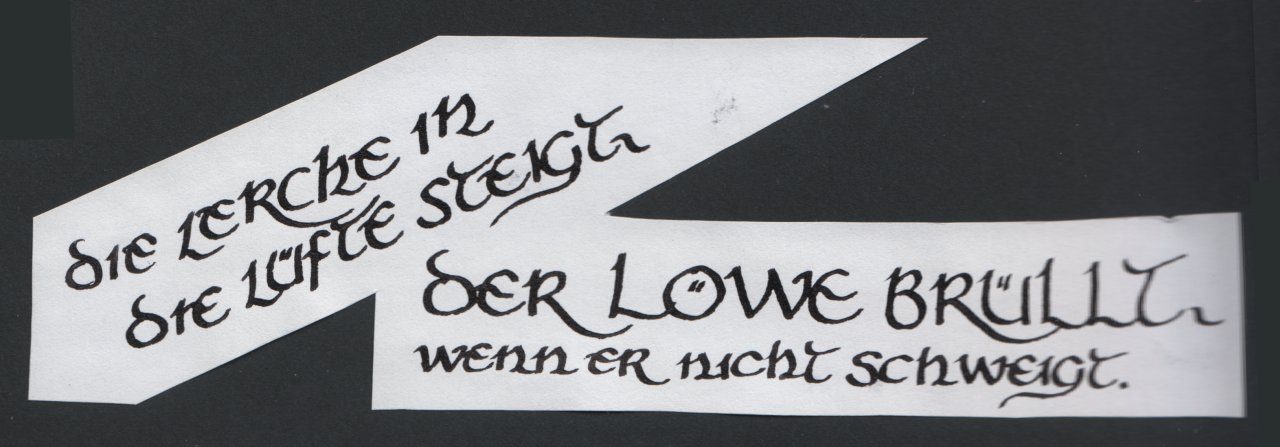 die Lerche in
die Lüfte steigt.
der Löwe brüllt.
wenn er nicht schweigt.